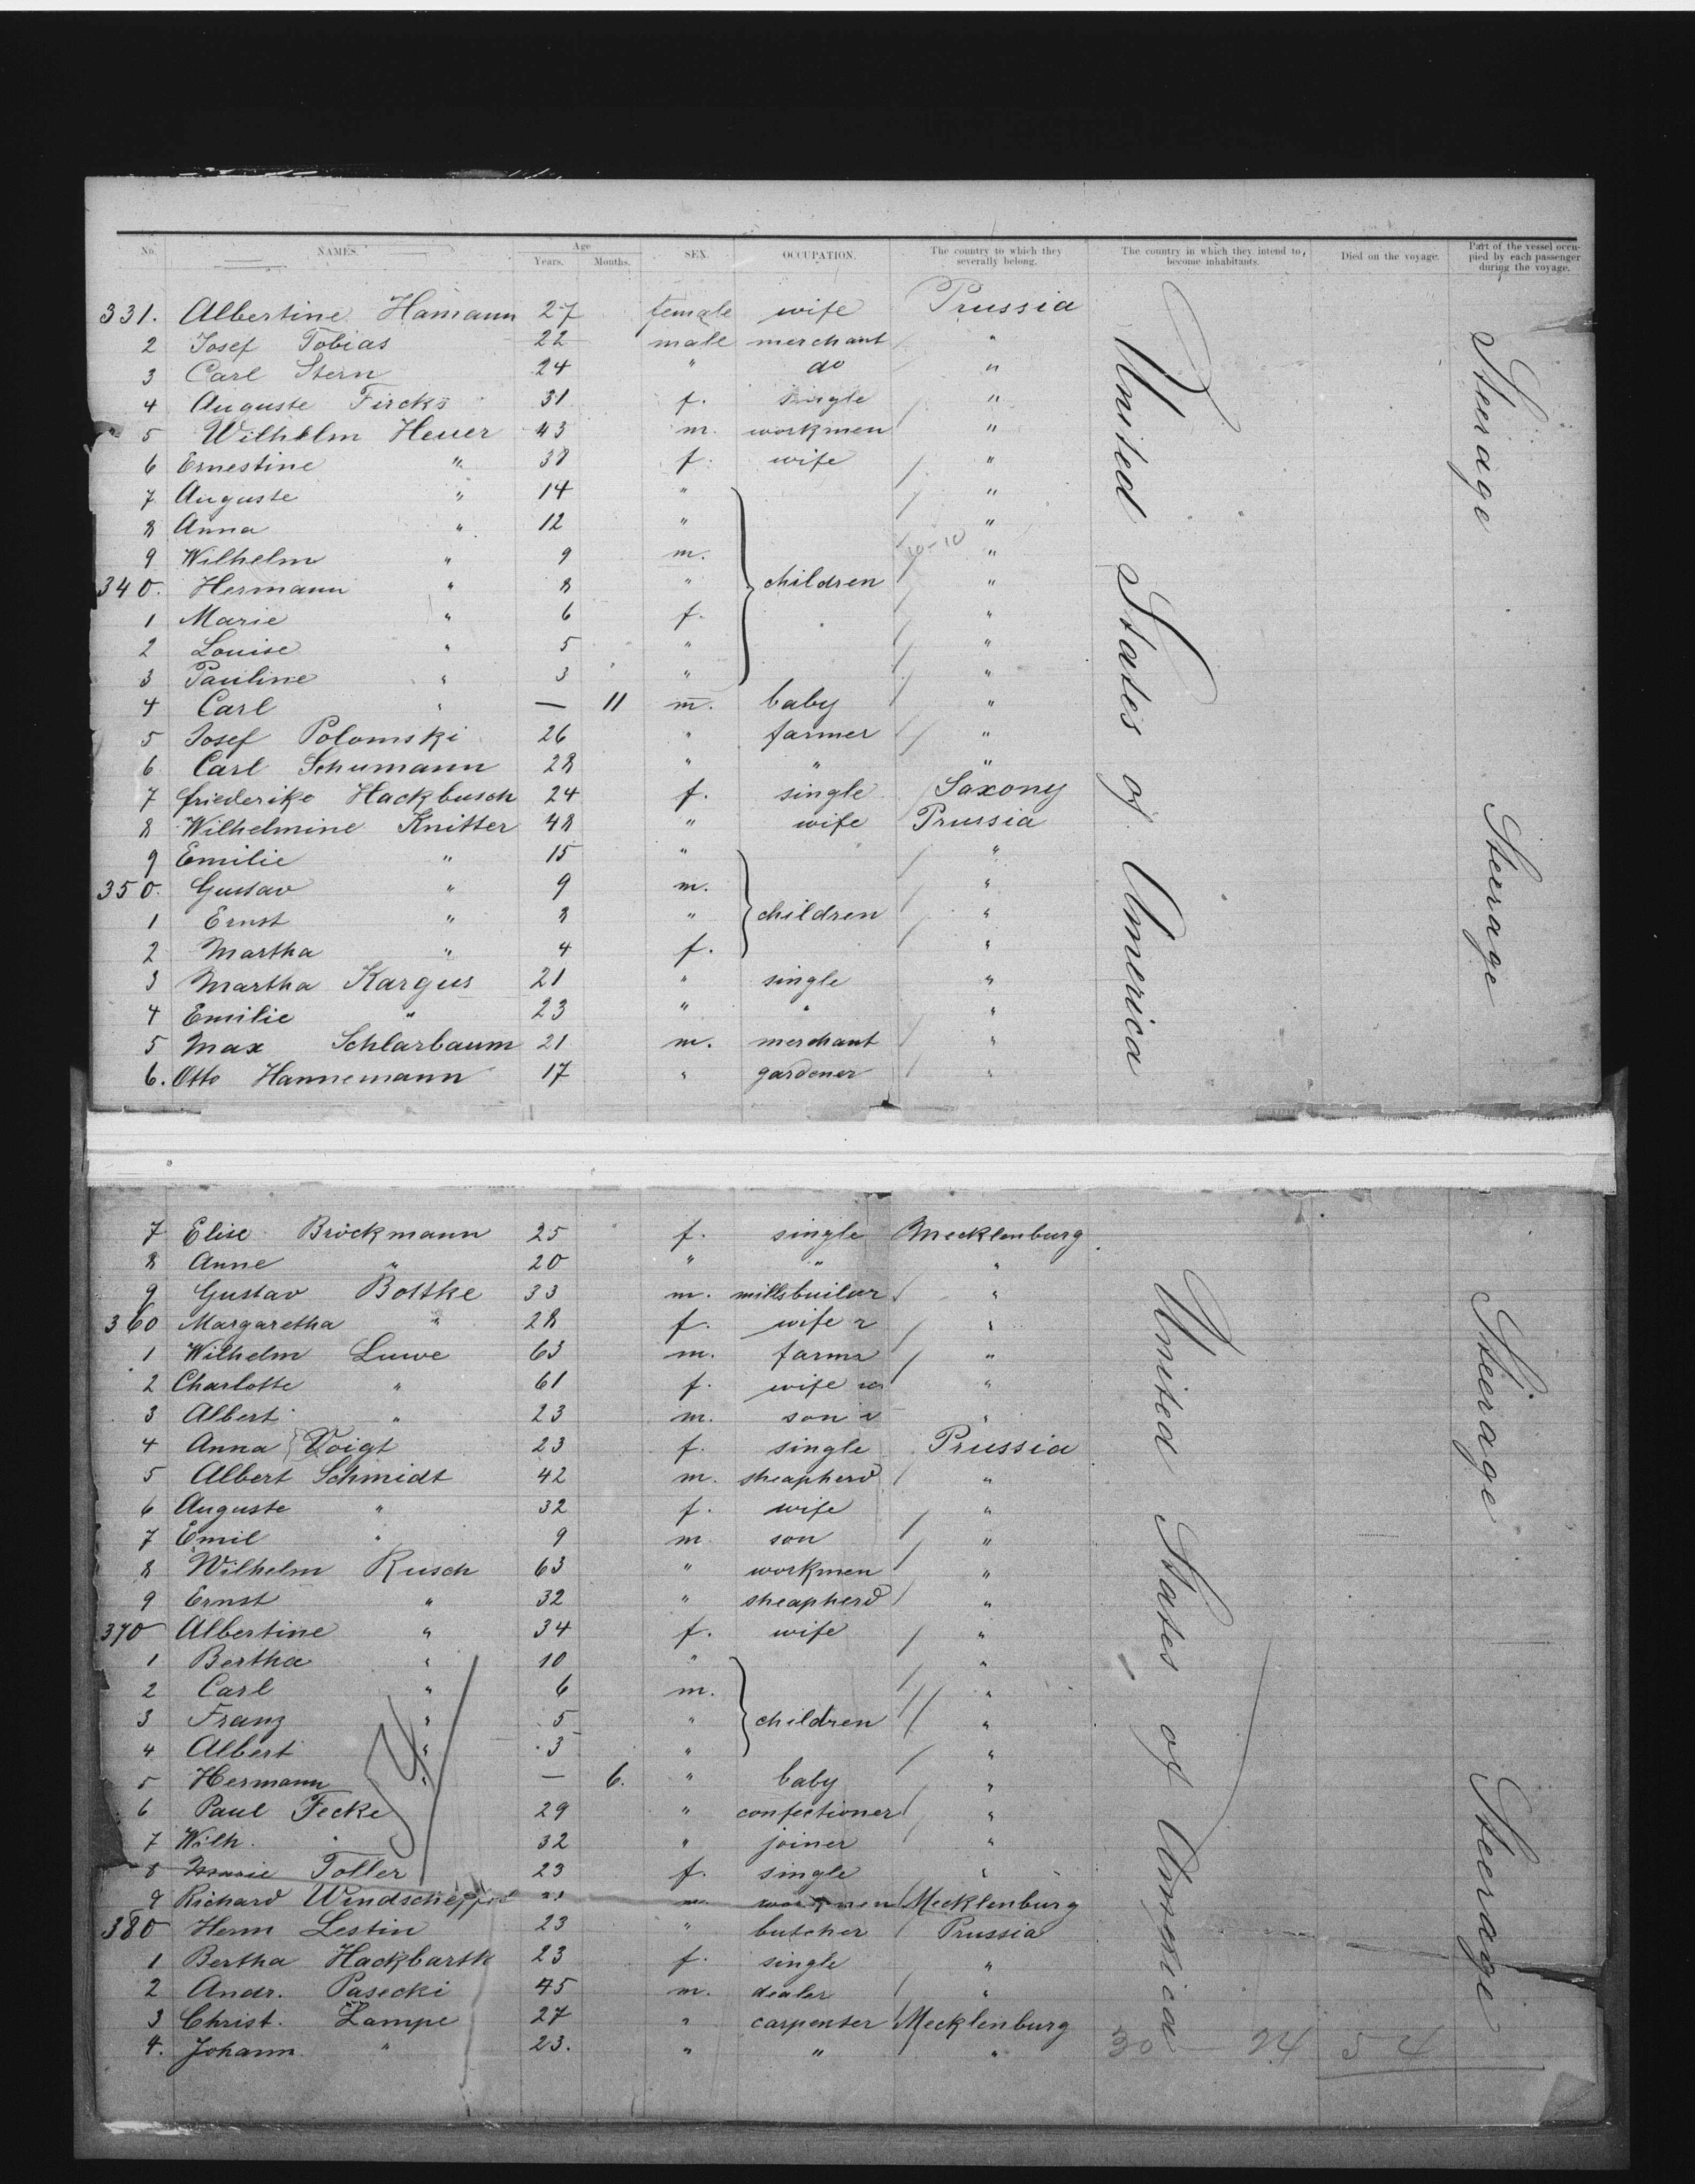 No. NAMES. Age Years. Months. SEX. OCCUPATION. The country to which they severally belong. The country in which they intend to become inhabitants. Died on the voyage. Part of the vessel occupied by each passenger during the voyage.
331. Albertine Hamann 27 female wife Prussia
2 Josef Tobias 22 male merchant "
3 Carl Stern 24 " do "
4 Auguste Fircks 31 f. single "
5 Wilhelm Heuer 43 m. workmen "
6 Ernestine " 38 f. wife "
7 Auguste " 14 " "
8 Anna " 12 " "
9 Wilhelm " 9 m. "
340. Hermann " 8 " children "
1 Marie " 6 f. "
2 Louise " 5 " "
3 Pauline " 3 " "
4 Carl " — 11 m. baby "
5 Josef Polomski 26 " farmer "
6 Carl Schumann 28 " " "
7 friederike Hackbusch 24 f. single Saxony
8 Wilhelmine Knitter 48 " wife Prussia
9 Emilie " 15 " "
350. Gustav " 9 m. "
1 Ernst " 8 " children "
2 Martha " 4 f. "
3 Martha Kargus 21 " single "
4 Emilie " 23 " " "
5 Max Schlarbaum 21 m. merchant "
6. Otto Hannemann 17 " gardener "
United States of America
Steerage
Steerage
7 Elise Bröckmann 25 f. single Mecklenburg
8 Anne " 20 " " "
9 Gustav Bottke 33 m. "
360 Margaretha " 28 f. wife "
1 Wilhelm Luwe 63 m. "
2 Charlotte " 61 f. wife "
3 Albert " 23 m. son "
4 Anna Voigt 23 f. single Prussia
5 Albert Schmidt 42 m. sheapherd "
6 Auguste " 32 f. wife "
7 Emil " 9 m son "
8 Wilhelm Rusch 63 " workmen "
9 Ernst " 32 " sheapherd "
370 Albertine " 34 f. wife "
1 Bertha " 10 " "
2 Carl " 6 m. "
3 Franz " 5 " children "
4 Albert " 3 " "
5 Hermann " — 6. " baby "
6 Paul Fecke 29 " confectioner "
7 Wilh. " 32 " joiner "
8 Marie Toller 23 f. single "
9 Richard m workmen Mecklenburg
380 Herm Lestin 23 " butcher Prussia
1 Bertha Hackbarth 23 f. single "
2 Andr. Pasecki 45 m. dealer "
3 Christ. Lampe 27 " carpenter Mecklenburg
4. Johann " 23. " " "
United States of America
Steerage
Steerage
30 — 24 54